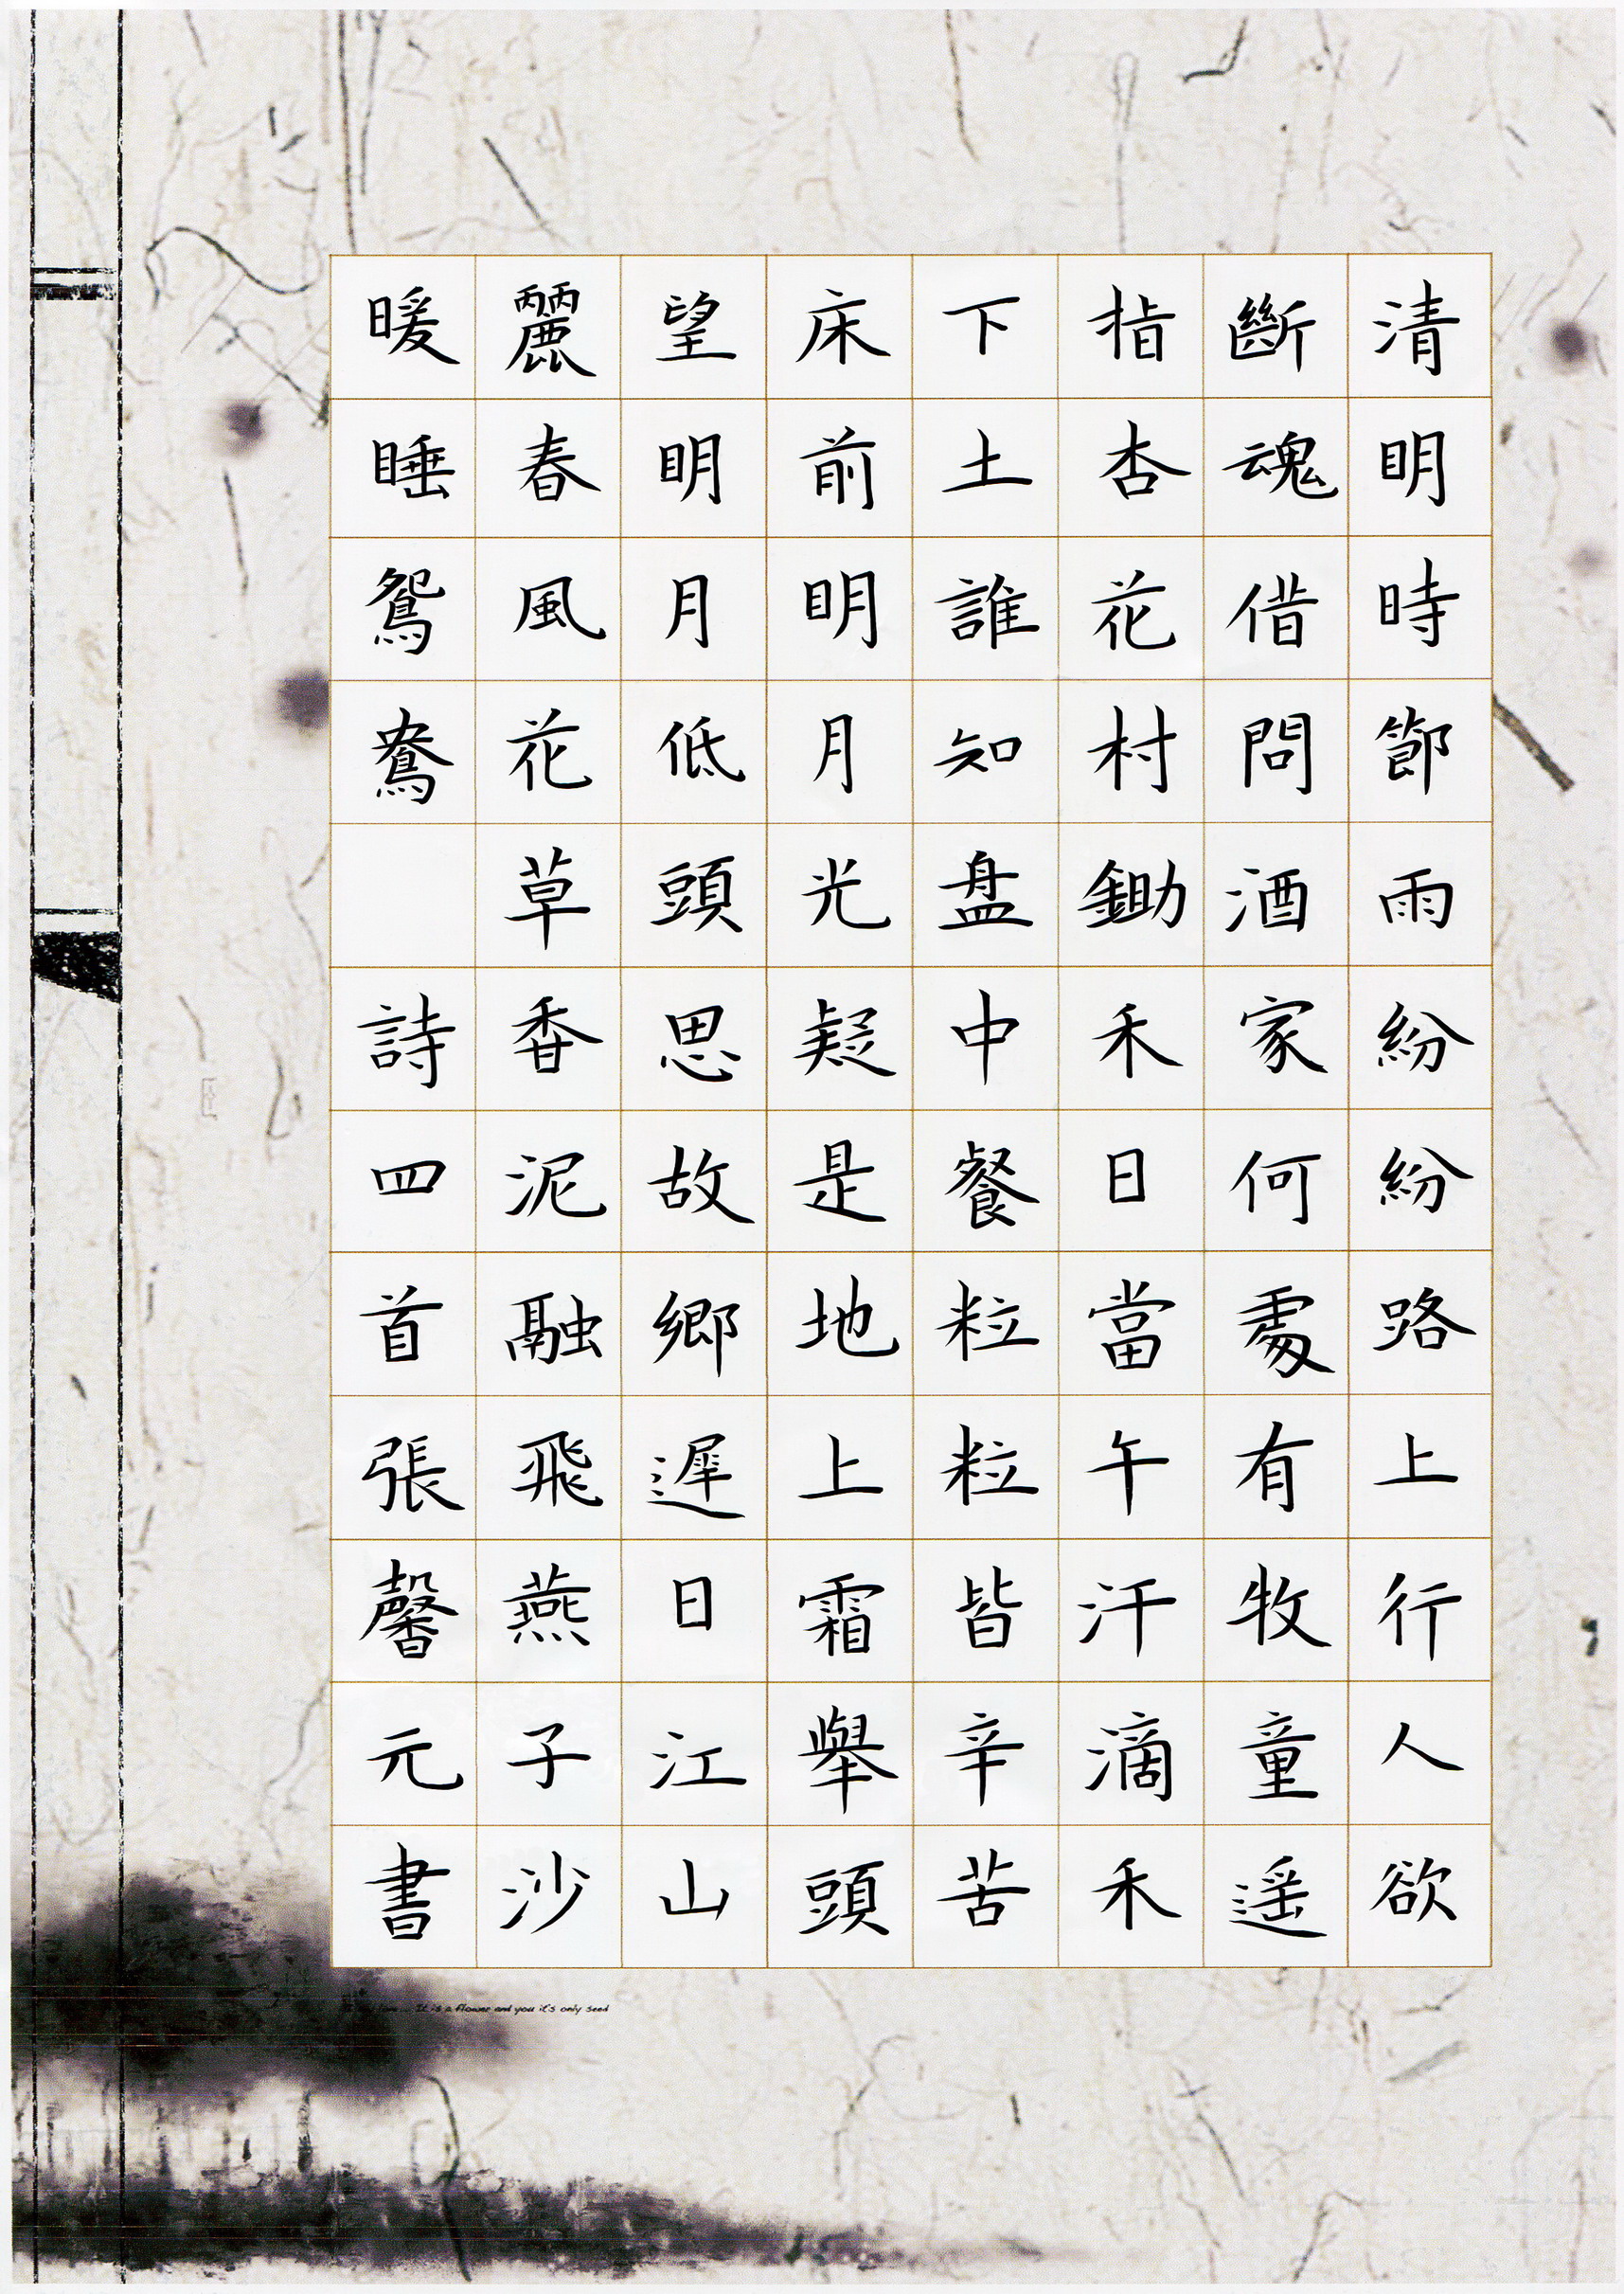 清明時節雨紛紛路上行人欲
斷魂借問酒家何處有牧童遥
指杏花村鋤禾日當午汗滴禾
下土誰知盤中餐粒粒皆辛苦
床前明月光疑是地上霜舉頭
望明月低頭思故鄉遲日江山
麗春風花草香泥融飛燕子沙
暖睡鴛鴦 詩四首張馨元書
It is a flower and you it's only seed